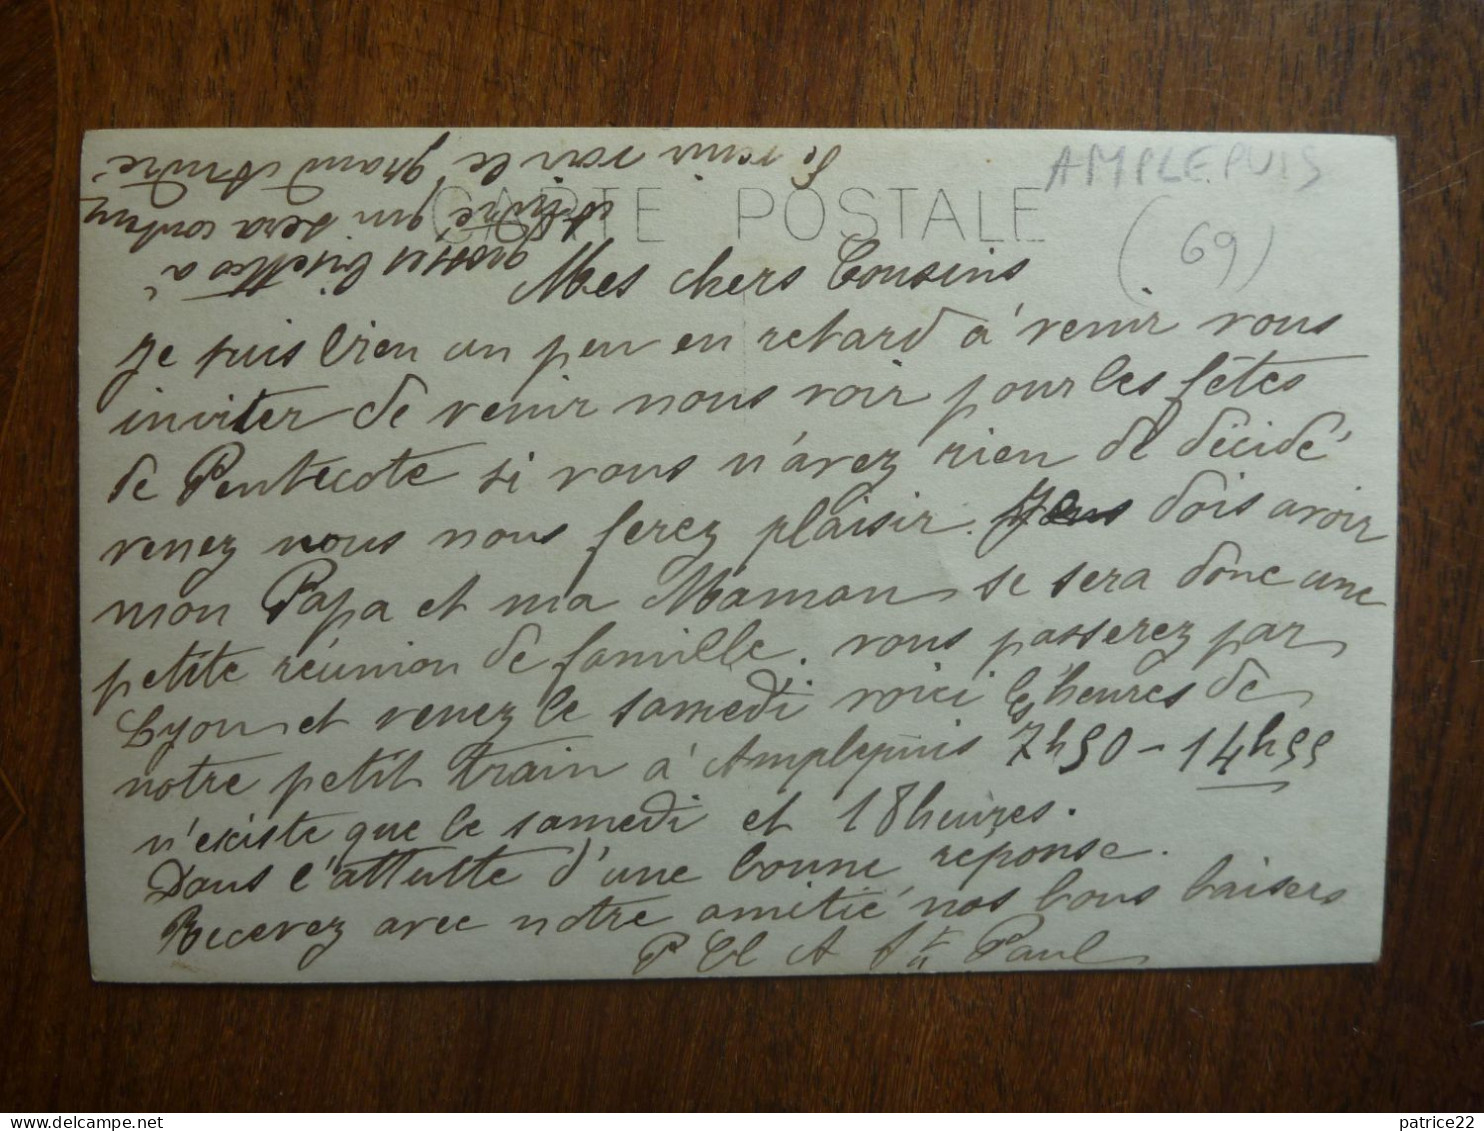 AMPLEPUIS
(69)
CARTE POSTALE
Mes chers Cousins
je suis bien un peu en retard à venir vous
inviter de venir nous voir pour les fêtes
de Pentecote si vous n'avez rien de décidé
venez vous nous ferez plaisir. Je dois avoir
mon Papa et ma Maman se sera donc une
petite réunion de famille. vous passerez par
Lyon et venez le samedi voici les heures de
notre petit train à Amplepuis 7h50 - 14h55
n'existe que le samedi et 18 heures.
Dans l'attente d'une bonne reponse.
Recevez avec notre amitié nos bons baisers
P Cl A Paul
grosses bisettes a
André qui sera content
de venir voir le grand André
patrice22